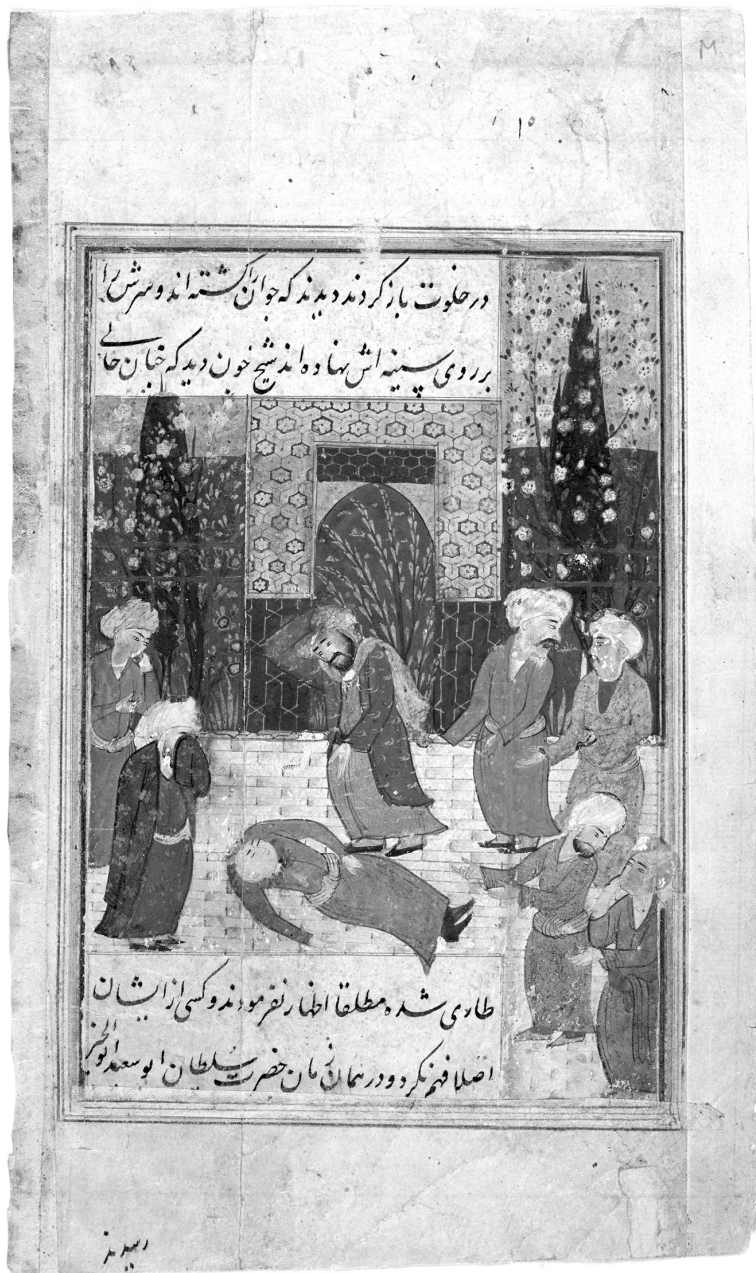 M
۱۵
در خلوت باز کردند دیدند که جوان را کشته اند و سرش را
بر روی سینه اش نهاده اند شیخ خون دید که خبان حالی
طاری شده مطلقا اظهار نفرمودند و کسی از ایشان
اصلا فهم نکرد و در همان زمان حضرت سلطان ابو سعید ابو الخیر
رسیدند